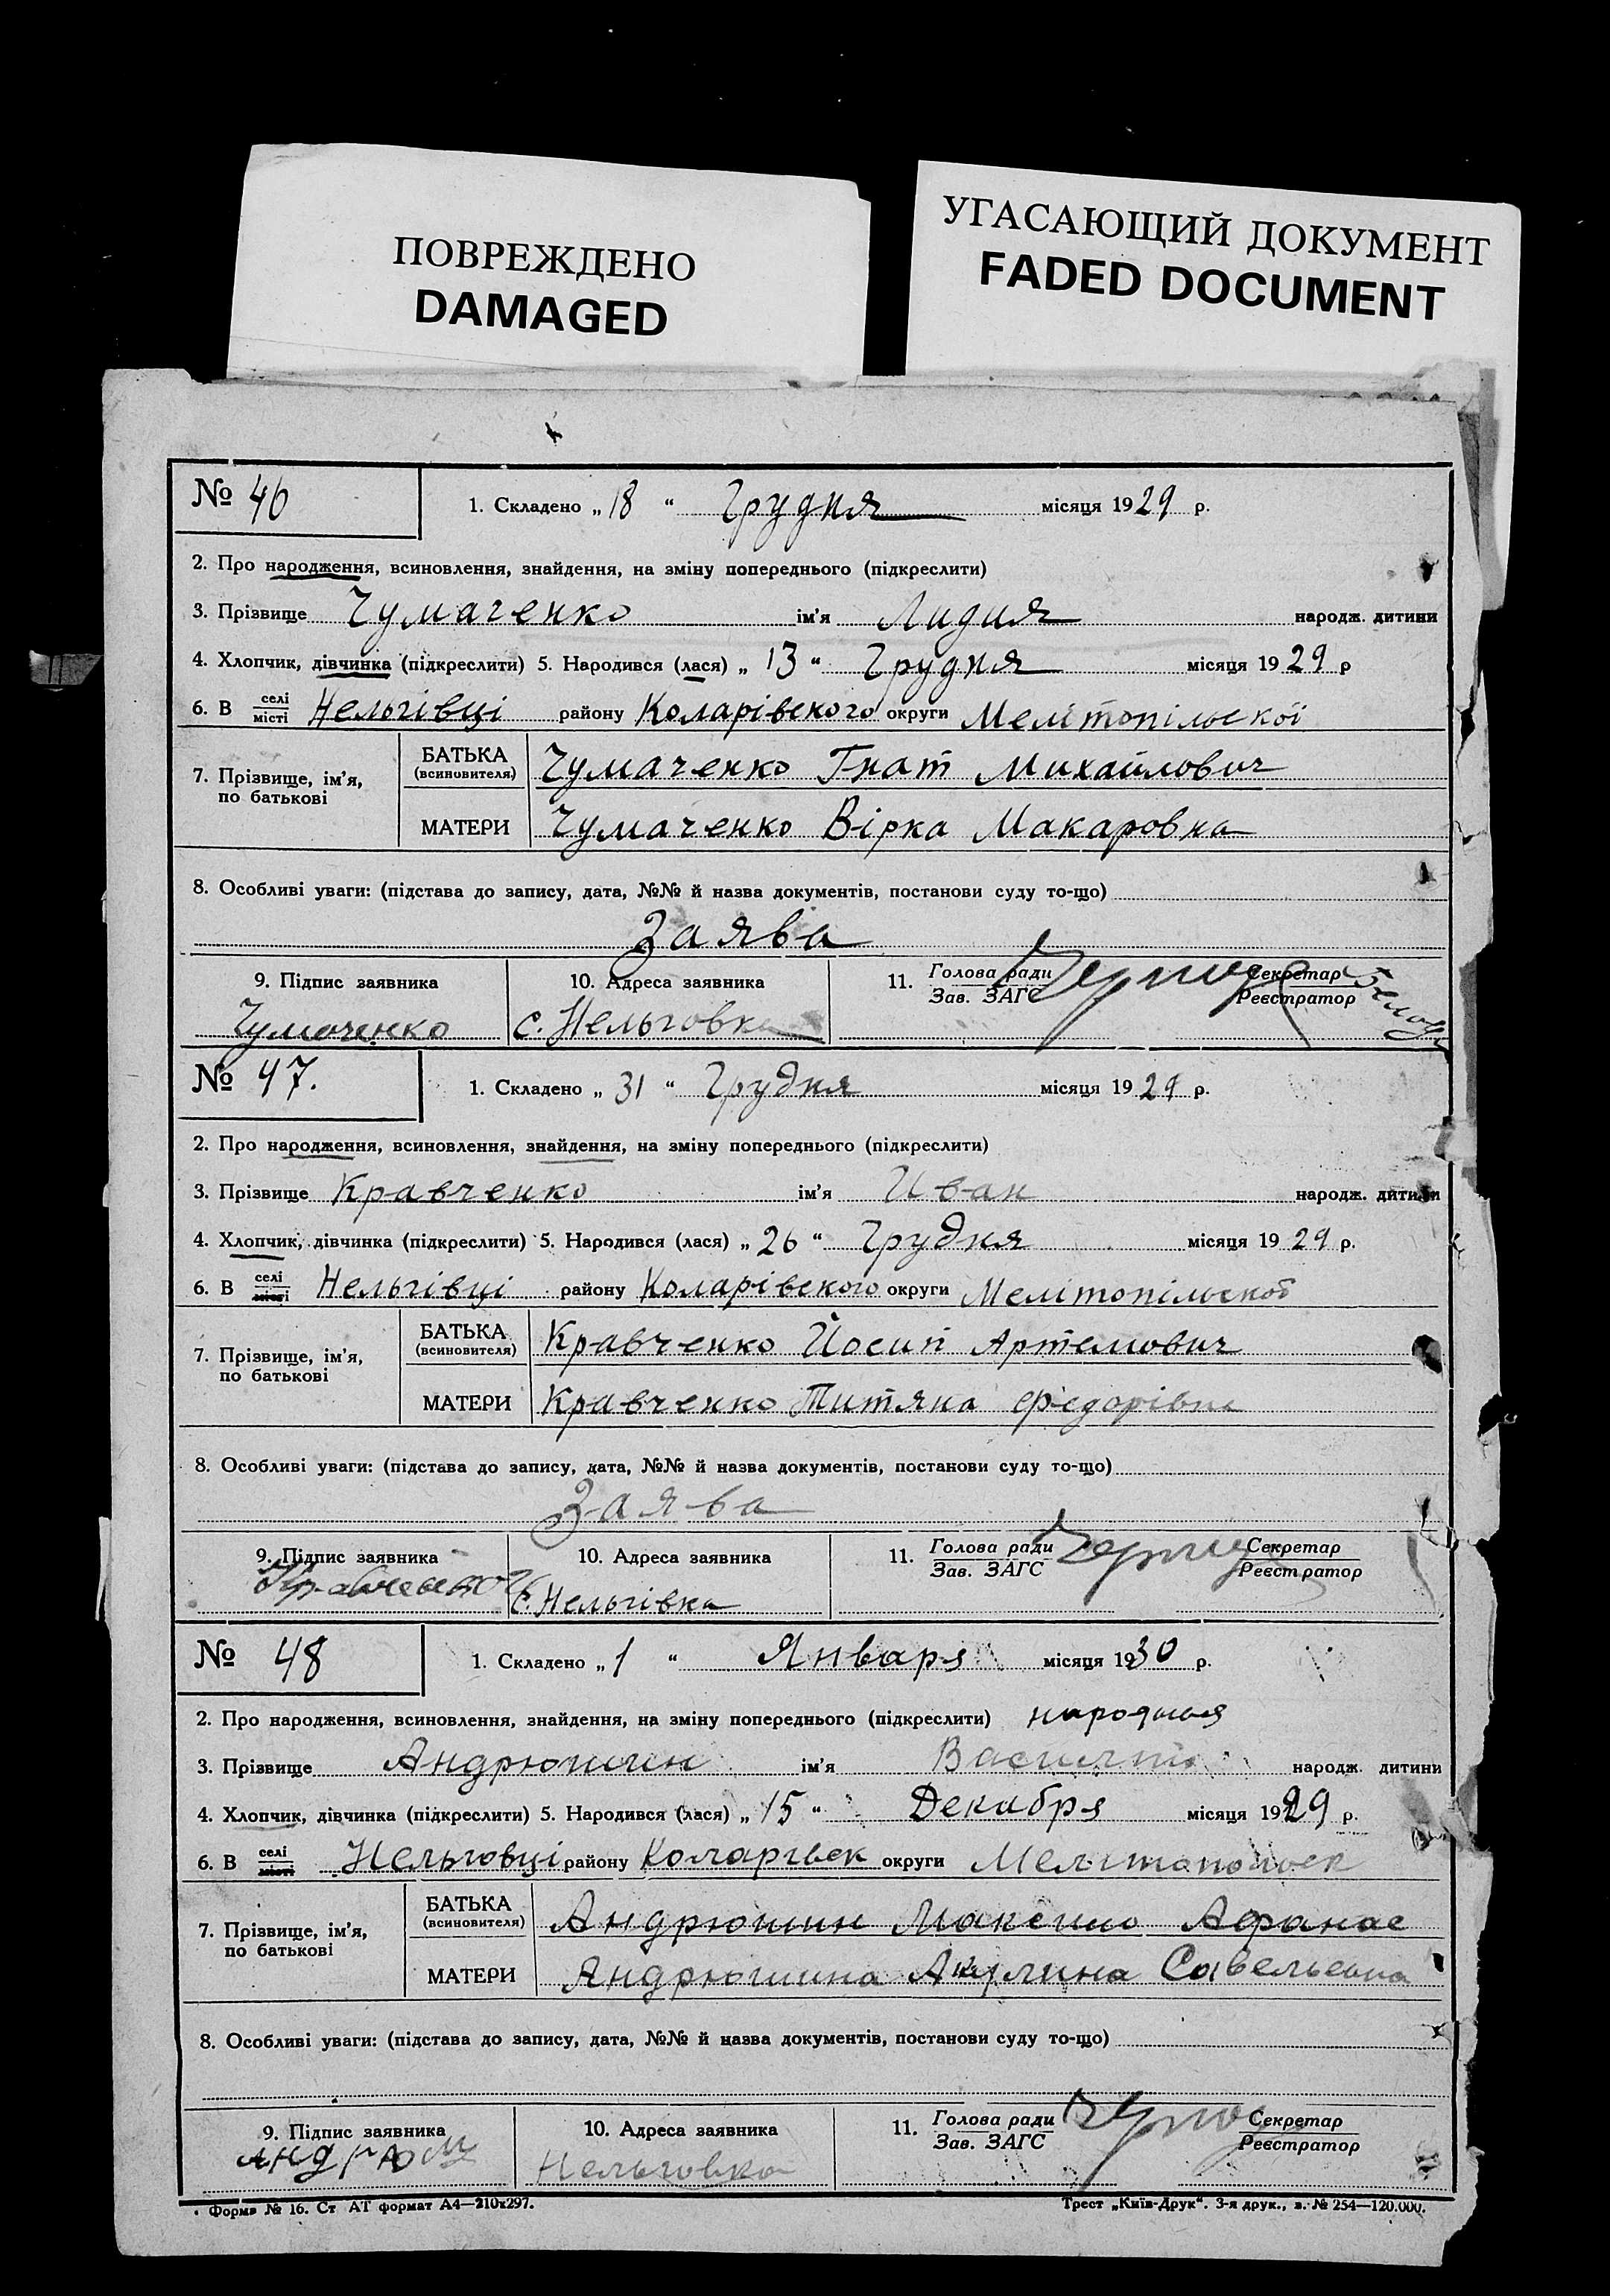 ПОВРЕЖДЕНО
DAMAGED
УГАСАЮЩИЙ ДОКУМЕНТ
FADED DOCUMENT
№ 46
1. Складено „ 18 “ Грудня місяця 1929 р.
2. Про народження, всиновлення, знайдення, на зміну попереднього (підкреслити)
3. Прізвище Чумаченко ім'я Лидия народж. дитини
4. Хлопчик, дівчинка (підкреслити) 5. Народився (лася) „ 13 “ Грудня місяця 1929 р
6. В селі місті Нельгівці району Коларівского округи Мелітопільскої
7. Прізвище, ім'я, по батькові
БАТЬКА (всиновителя) Чумаченко Гнат Михайлович
МАТЕРИ Чумаченко Вірка Макаровна
8. Особливі уваги: (підстава до запису, дата, №№ й назва документів, постанови суду то-що)
Заява
9. Підпис заявника
Чумаченко
10. Адреса заявника
с. Нельговка
11. Голова ради Зав. ЗАГС
Секретар Реєстратор
№ 47.
1. Складено „ 31 “ Грудня місяця 1929 р.
2. Про народження, всиновлення, знайдення, на зміну попереднього (підкреслити)
3. Прізвище Кравченко ім'я Иван народж. дитини
4. Хлопчик, дівчинка (підкреслити) 5. Народився (лася) „ 26 “ Грудня місяця 1929 р.
6. В селі місті Нельгівці району Коларівского округи Мелітопільскоі
7. Прізвище, ім'я, по батькові
БАТЬКА (всиновителя) Кравченко Йосип Артемович
МАТЕРИ Кравченко Титяна Федорівна
8. Особливі уваги: (підстава до запису, дата, №№ й назва документів, постанови суду то-що)
Заява
9. Підпис заявника
Кравченко
10. Адреса заявника
с. Нельгівка
11. Голова ради Зав. ЗАГС
Секретар Реєстратор
№ 48
1. Складено „ 1 “ Января місяця 1930 р.
2. Про народження, всиновлення, знайдення, на зміну попереднього (підкреслити)
3. Прізвище Андрюшин ім'я народж. дитини
4. Хлопчик, дівчинка (підкреслити) 5. Народився (лася) „ 15 “ Декабря місяця 1929 р.
6. В селі місті Нельговці району округи
7. Прізвище, ім'я, по батькові
БАТЬКА (всиновителя) Андрюшин Максим Афанас
МАТЕРИ Андрюшина Акулина Савельевна
8. Особливі уваги: (підстава до запису, дата, №№ й назва документів, постанови суду то-що)
9. Підпис заявника
Андрюш
10. Адреса заявника
Нельговка
11. Голова ради Зав. ЗАГС
Секретар Реєстратор
Форма № 16. Ст АТ формат А4—210x297.
Трест „Київ-Друк“. 3-я друк., з. № 254—120.000.